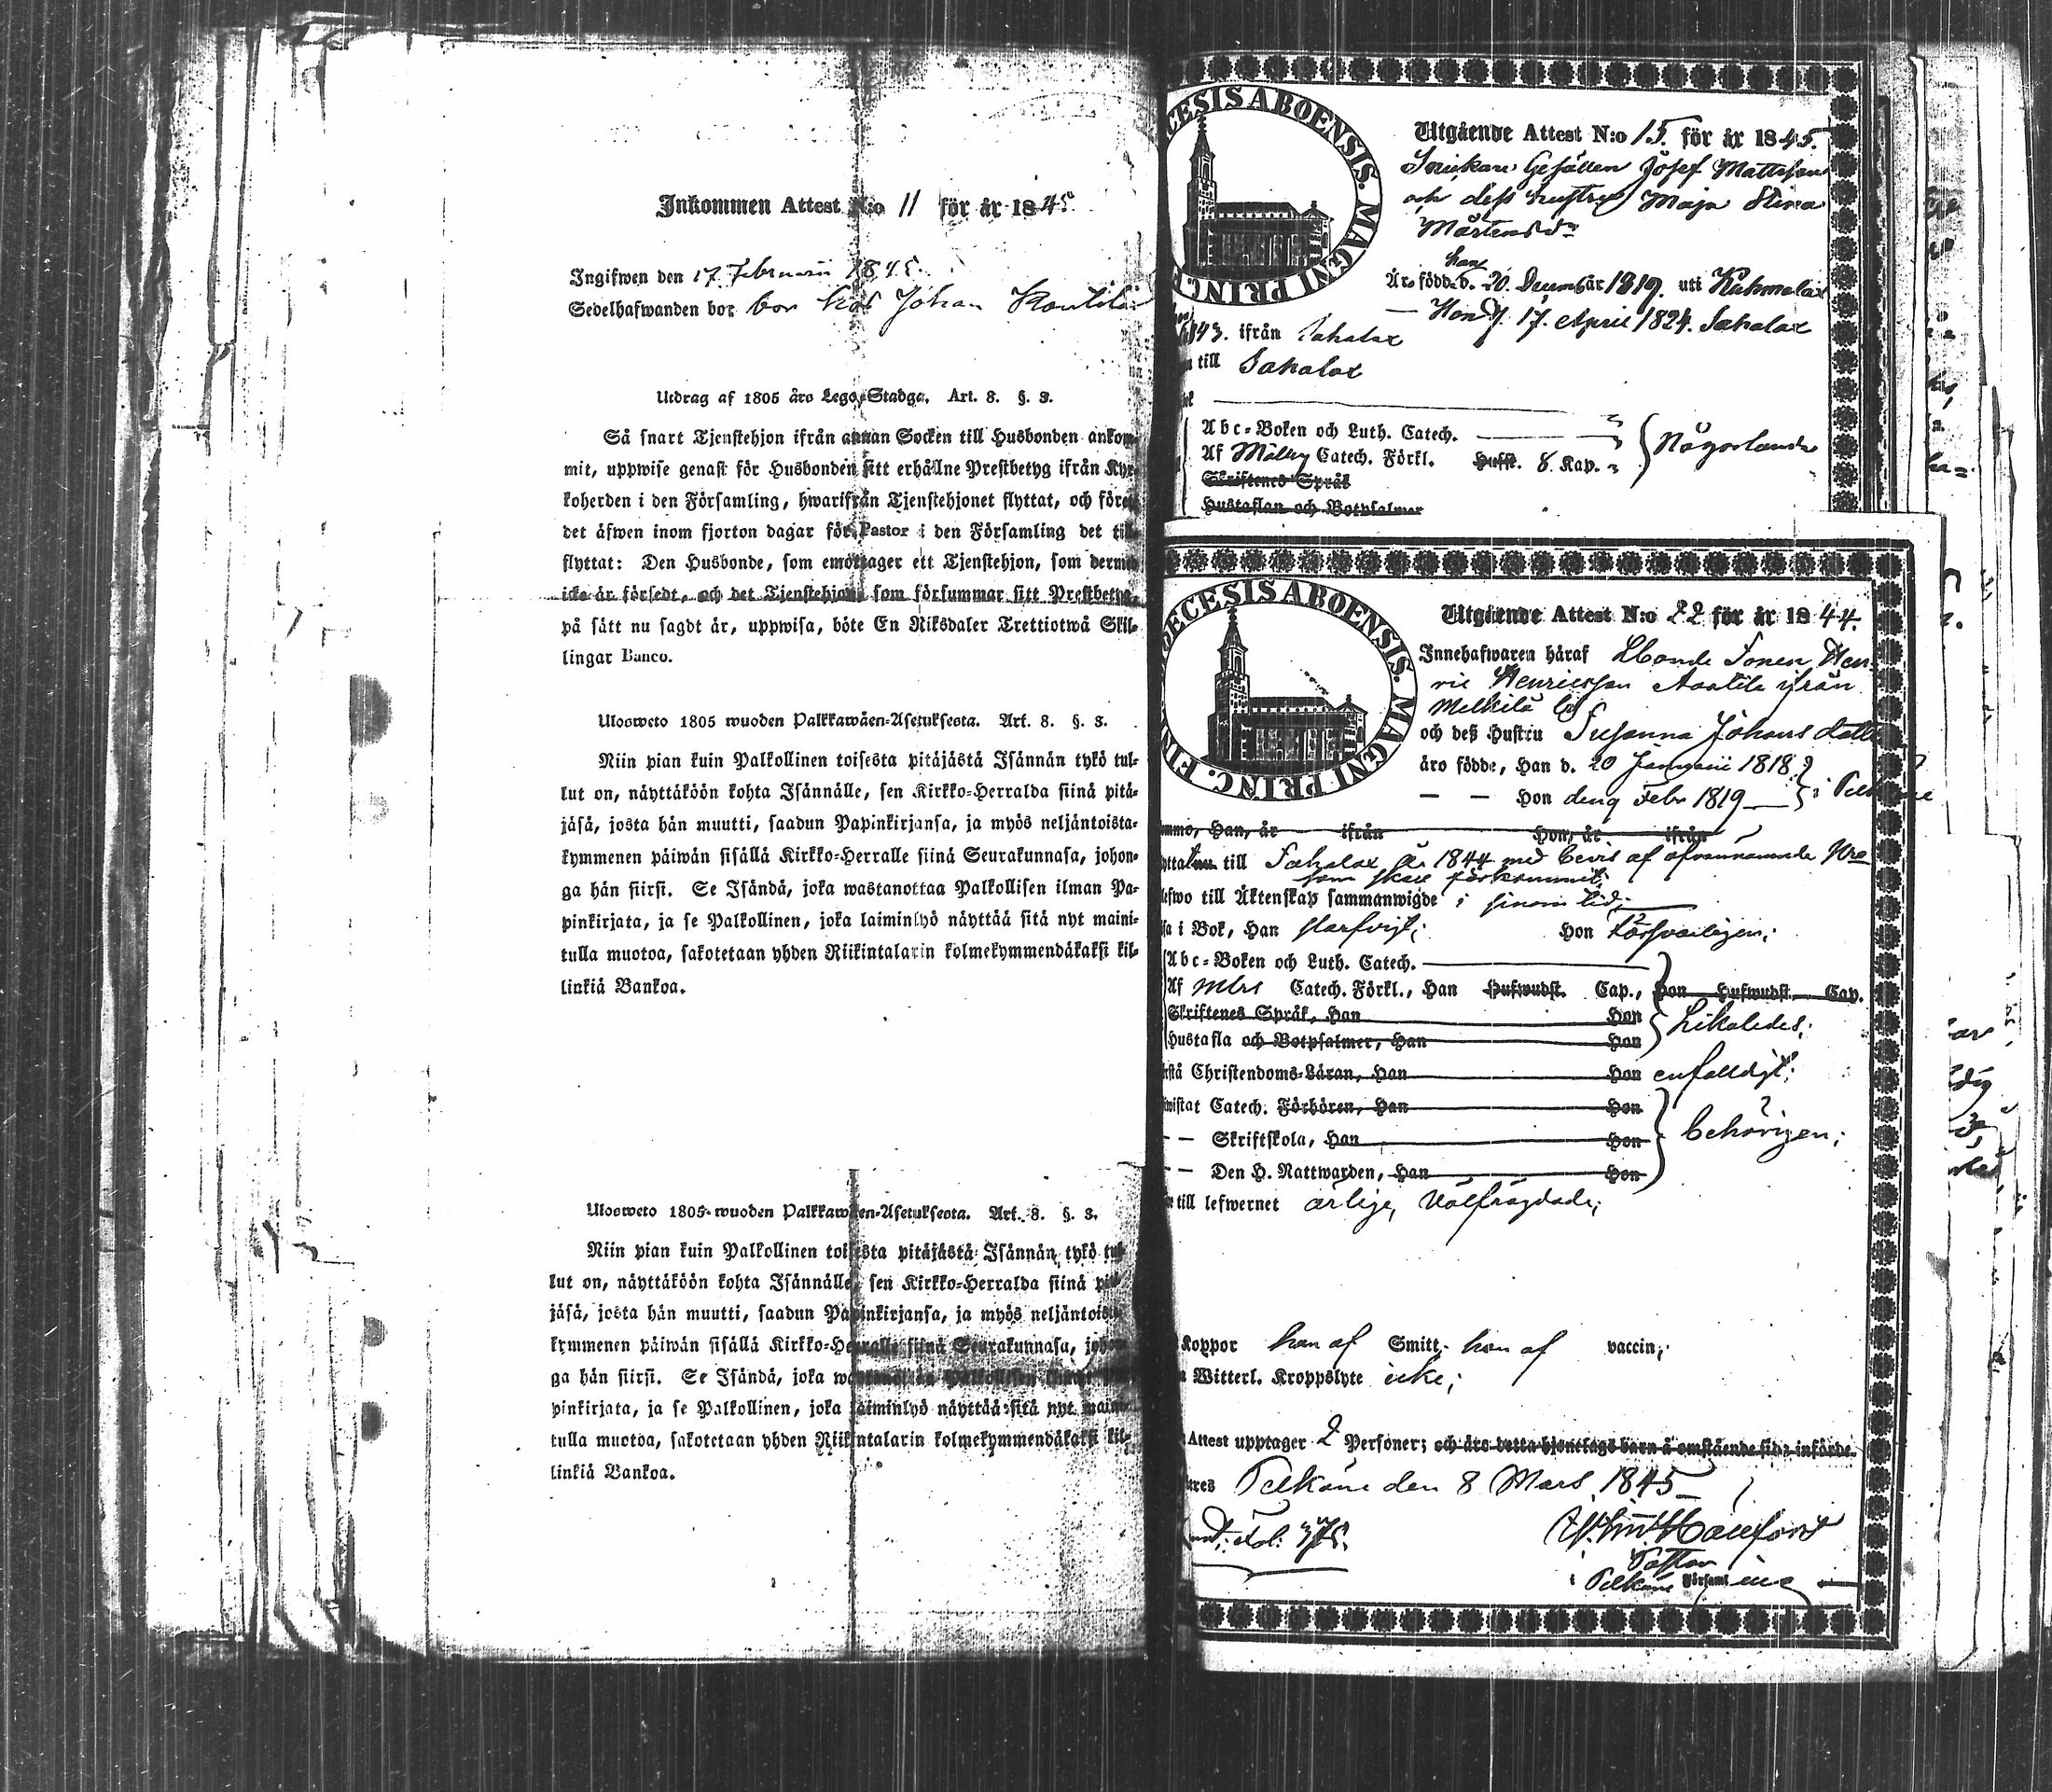 Inkommen Attest N:o 11 för år 1845
Ingifwen den 17 Februarii 1845.
Sedelhafwanden bor bor hos Johan
Utdrag af 1805 års Lego-Stadga. Art. 8. §. 3.
Så snart Tjenstehjon ifrån annan Socken till Husbonden ankom-
mit, uppwise genast för Husbonden sitt erhållne Prestbetyg ifrån Kyr-
koherden i den Församling, hwarifrån Tjenstehjonet flyttat, och förete
det äfwen inom fjorton dagar för Pastor i den Församling det till-
flyttat: Den Husbonde, som emottager ett Tjenstehjon, som dermed
icke är försedt, och det Tjenstehjon, som försummar sitt Prestbetyg,
på sätt nu sagdt är, uppwisa, böte En Riksdaler Trettiotwå Skil-
lingar Banco.
Ulosweto 1805 wuoden Palkkawäen-Asetuksesta. Art. 8. §. 3.
Niin pian kuin Palkollinen toisesta pitäjästä Isännän tykö tul-
lut on, näyttäköön kohta Isännälle, sen Kirkko-Herralda siinä pitä-
jäsä, josta hän muutti, saadun Papinkirjansa, ja myös neljäntoista-
kymmenen päiwän sisällä Kirkko-Herralle siinä Seurakunnasa, johon-
ga hän siirsi. Se Isändä, joka wastanottaa Palkollisen ilman Pa-
pinkirjata, ja se Palkollinen, joka laiminlyö näyttää sitä nyt maini-
tulla muotoa, sakotetaan yhden Riikintalarin kolmekymmendäkaksi kil-
linkiä Bankoa.
Ulosweto 1805 wuoden Palkkawäen-Asetuksesta. Art. 8. §. 3.
Niin pian kuin Palkollinen toisesta pitäjästä Isännän tykö tul-
lut on, näyttäköön kohta Isännälle, sen Kirkko-Herralda siinä pitä-
jäsä, josta hän muutti, saadun Papinkirjansa, ja myös neljäntoista-
kymmenen päiwän sisällä Kirkko-Herralle siinä Seurakunnasa, johon-
ga hän siirsi. Se Isändä, joka wastanottaa Palkollisen ilman Pa-
pinkirjata, ja se Palkollinen, joka laiminlyö näyttää sitä nyt maini-
tulla muotoa, sakotetaan yhden Riikintalarin kolmekymmendäkaksi kil-
linkiä Bankoa.
CESIS ABOENSIS. MAGNI PRINC
Utgående Attest N:o 15. för år 1845.
Snickare Gesällen Josef Mattsson
och dess hustru Maja Stina
Mårtensdr
Äro född han d. 20. Decemb år 1819. uti Kuhmalax
— Hon d. 17. April 1824. Sahalax
43. ifrån Sahalax
till Sahalax
Abc-Boken och Luth. Catech.
Af Catech. Förkl. Hufst. 8. Kap. Någorlunda
Skriftenes Språk
Hustaflan och Botpsalmer
ECESIS ABOENSIS. MAGNI PRINC. FIN
Utgående Attest N:o 22 för år 1844.
Innehafwaren häraf Sonen Hen-
ric Henricsson ifrån
Melkilä by
och deß Hustru Susanna Johans dotter
äro födde, Han d. 20 Januarii 1818
— — Hon den 9 Febr 1819 i Pelkäne
Han, är ifrån Hon, är ifrån
till Sahalax år 1844 med bevis af ofvannämnde No
som skall förkommit;
till Äktenskap sammanwigde i sinom tid;
i Bok, Han Hon försvarligen;
Abc-Boken och Luth. Catech.
Af Catech. Förkl., Han Hufwudst. Cap., Hon Hufwudst. Cap.
Skriftenes Språk, Han Hon Likaledes;
Hustafla och Botpsalmer, Han Hon
Christendoms-Läran, Han Hon enfaldigt;
wistat Catech. Förhören, Han Hon
— Skriftskola, Han Hon behörigen;
— Den H. Nattwarden, Han Hon
till lefwernet ärlige, välfrägdade;
Koppor han af Smitt. hon af vaccin;
Witterl. Kroppslyte icke;
Attest upptager 2 Personer; och äro detta hjonelags barn å omstående sida införde.
Pelkäne den 8 Mars 1845
Pastor
i Pelkäne Församl